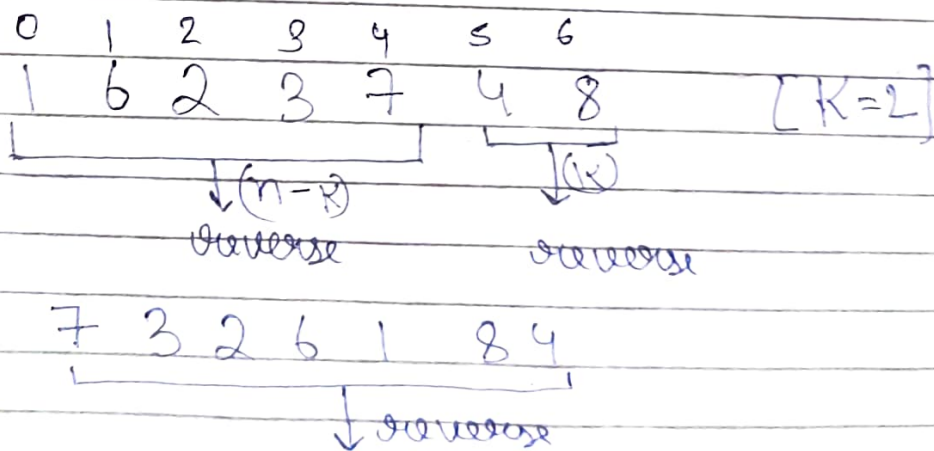 0 1 2 3 4 5 6
1 6 2 3 7 4 8 [K=2]
(n-k) (k)
reverse reverse
7 3 2 6 1 8 4
reverse